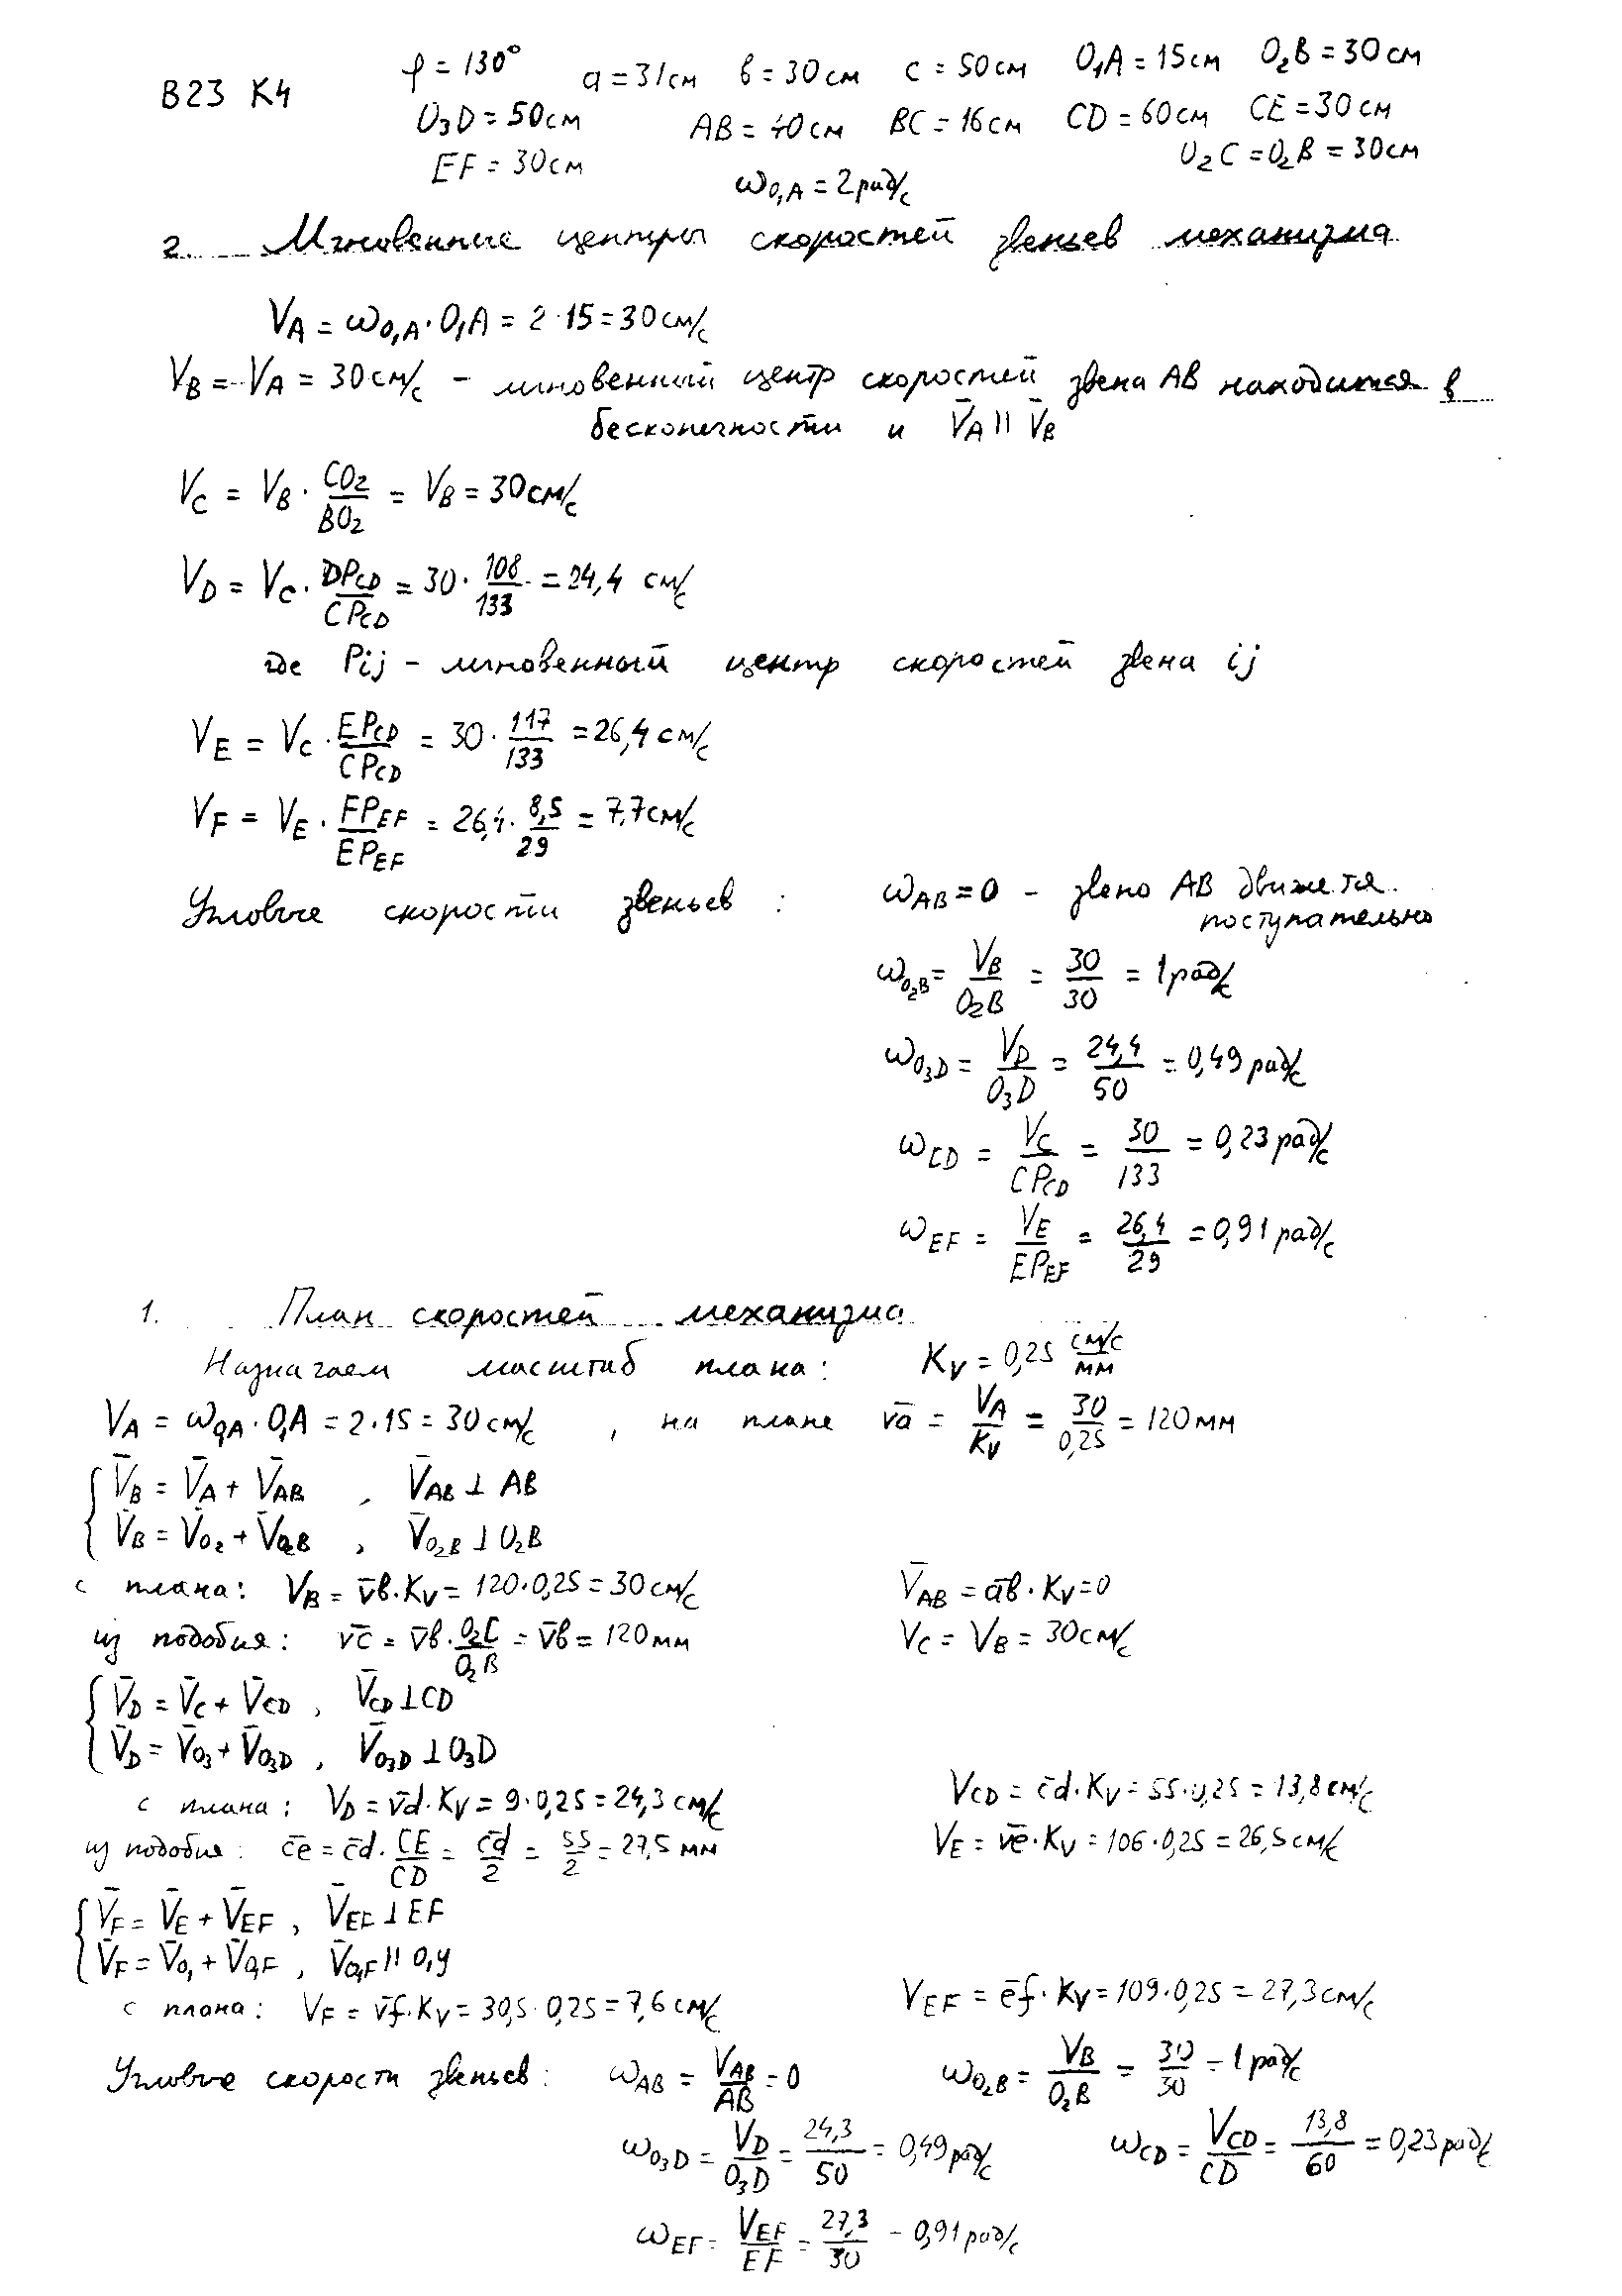 В23 К4
φ = 130° a = 31см в = 30см c = 50см O₁A = 15см O₂B = 30см
O₃D = 50см AB = 40см BC = 16см CD = 60см CE = 30см
EF = 30см ω₀₁A = 2рад/с O₂C = O₂B = 30см
2. Мгновенные центры скоростей звеньев механизма
V_A = ω_O₁A · O₁A = 2·15 = 30см/с
V_B = V_A = 30см/с – мгновенный центр скоростей звена AB находится в
бесконечности и V̄_A || V̄_B
V_C = V_B · CO₂/BO₂ = V_B = 30см/с
V_D = V_C · DP_CD/CP_CD = 30 · 108/133 = 24,4 см/с
где Pij – мгновенный центр скоростей звена ij
V_E = V_C · EP_CD/CP_CD = 30 · 117/133 = 26,4 см/с
V_F = V_E · FP_EF/EP_EF = 26,4 · 8,5/29 = 7,7см/с
Угловые скорости звеньев: ω_AB = 0 – звено AB движется
поступательно
ω_O₂B = V_B/O₂B = 30/30 = 1рад/с
ω_O₃D = V_D/O₃D = 24,4/50 = 0,49рад/с
ω_CD = V_C/CP_CD = 30/133 = 0,23рад/с
ω_EF = V_E/EP_EF = 26,4/29 = 0,91рад/с
1. План скоростей механизма
Назначаем масштаб плана: K_V = 0,25 см/с/мм
V_A = ω_O₁A · O₁A = 2·15 = 30см/с , на плане v̄a = V_A/K_V = 30/0,25 = 120мм
{ V̄_B = V̄_A + V̄_AB , V̄_AB ⊥ AB
V̄_B = V̄_O₂ + V̄_O₂B , V̄_O₂B ⊥ O₂B
с плана: V_B = v̄в·K_V = 120·0,25 = 30см/с V̄_AB = āв·K_V = 0
из подобия: v̄c = v̄в · O₂C/O₂B = v̄в = 120мм V_C = V_B = 30см/с
{ V̄_D = V̄_C + V̄_CD , V̄_CD ⊥ CD
V̄_D = V̄_O₃ + V̄_O₃D , V̄_O₃D ⊥ O₃D
с плана: V_D = v̄d·K_V = 9·0,25 = 24,3см/с V_CD = c̄d·K_V = 55·0,25 = 13,8см/с
из подобия: c̄e = c̄d · CE/CD = c̄d/2 = 55/2 = 27,5 мм V_E = v̄e·K_V = 106·0,25 = 26,5см/с
{ V̄_F = V̄_E + V̄_EF , V̄_EF ⊥ EF
V̄_F = V̄_O₁ + V̄_O₁F , V̄_O₁F || O₁y
с плана: V_F = v̄f·K_V = 30,5·0,25 = 7,6см/с V_EF = ēf·K_V = 109·0,25 = 27,3см/с
Угловые скорости звеньев: ω_AB = V_AB/AB = 0 ω_O₂B = V_B/O₂B = 30/30 = 1рад/с
ω_O₃D = V_D/O₃D = 24,3/50 = 0,49рад/с ω_CD = V_CD/CD = 13,8/60 = 0,23рад/с
ω_EF = V_EF/EF = 27,3/30 = 0,91рад/с